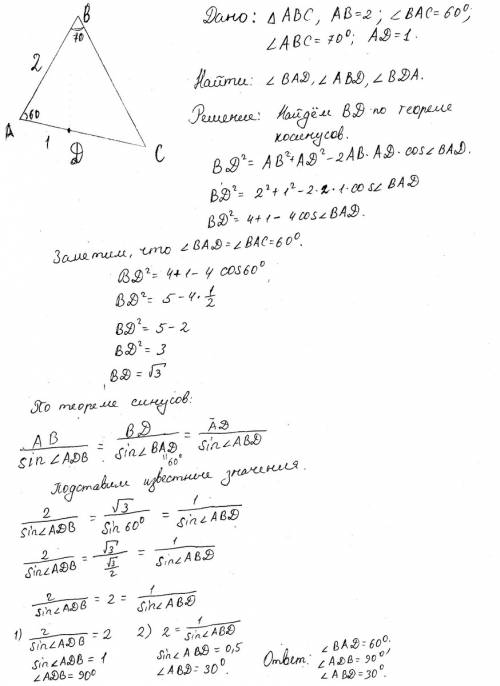 B
70
2
60
A
1
D
C
Дано: △ABC, AB=2; ∠BAC=60°;
∠ABC=70°; AD=1.
Найти: ∠BAD, ∠ABD, ∠BDA.
Решение: Найдём BD по теореме
косинусов.
BD²= AB²+AD²-2AB·AD·cos∠BAD.
BD²= 2²+1²-2·2·1·cos∠BAD
BD²= 4+1-4cos∠BAD.
Заметим, что ∠BAD=∠BAC=60°.
BD²= 4+1-4 cos60°,
BD²= 5-4·1/2
BD²= 5-2
BD²= 3
BD= √3
По теореме синусов:
AB/sin∠ADB = BD/sin∠BAD = AD/sin∠ABD
60°
Подставим известные значения.
2/sin∠ADB = √3/sin60° = 1/sin∠ABD
2/sin∠ADB = √3/(√3/2) = 1/sin∠ABD
2/sin∠ADB = 2 = 1/sin∠ABD
1) 2/sin∠ADB = 2
sin∠ADB = 1
∠ADB= 90°
2) 2= 1/sin∠ABD
sin∠ABD = 0,5
∠ABD= 30°.
Ответ: ∠BAD=60°,
∠ADB= 90°,
∠ABD=30°.